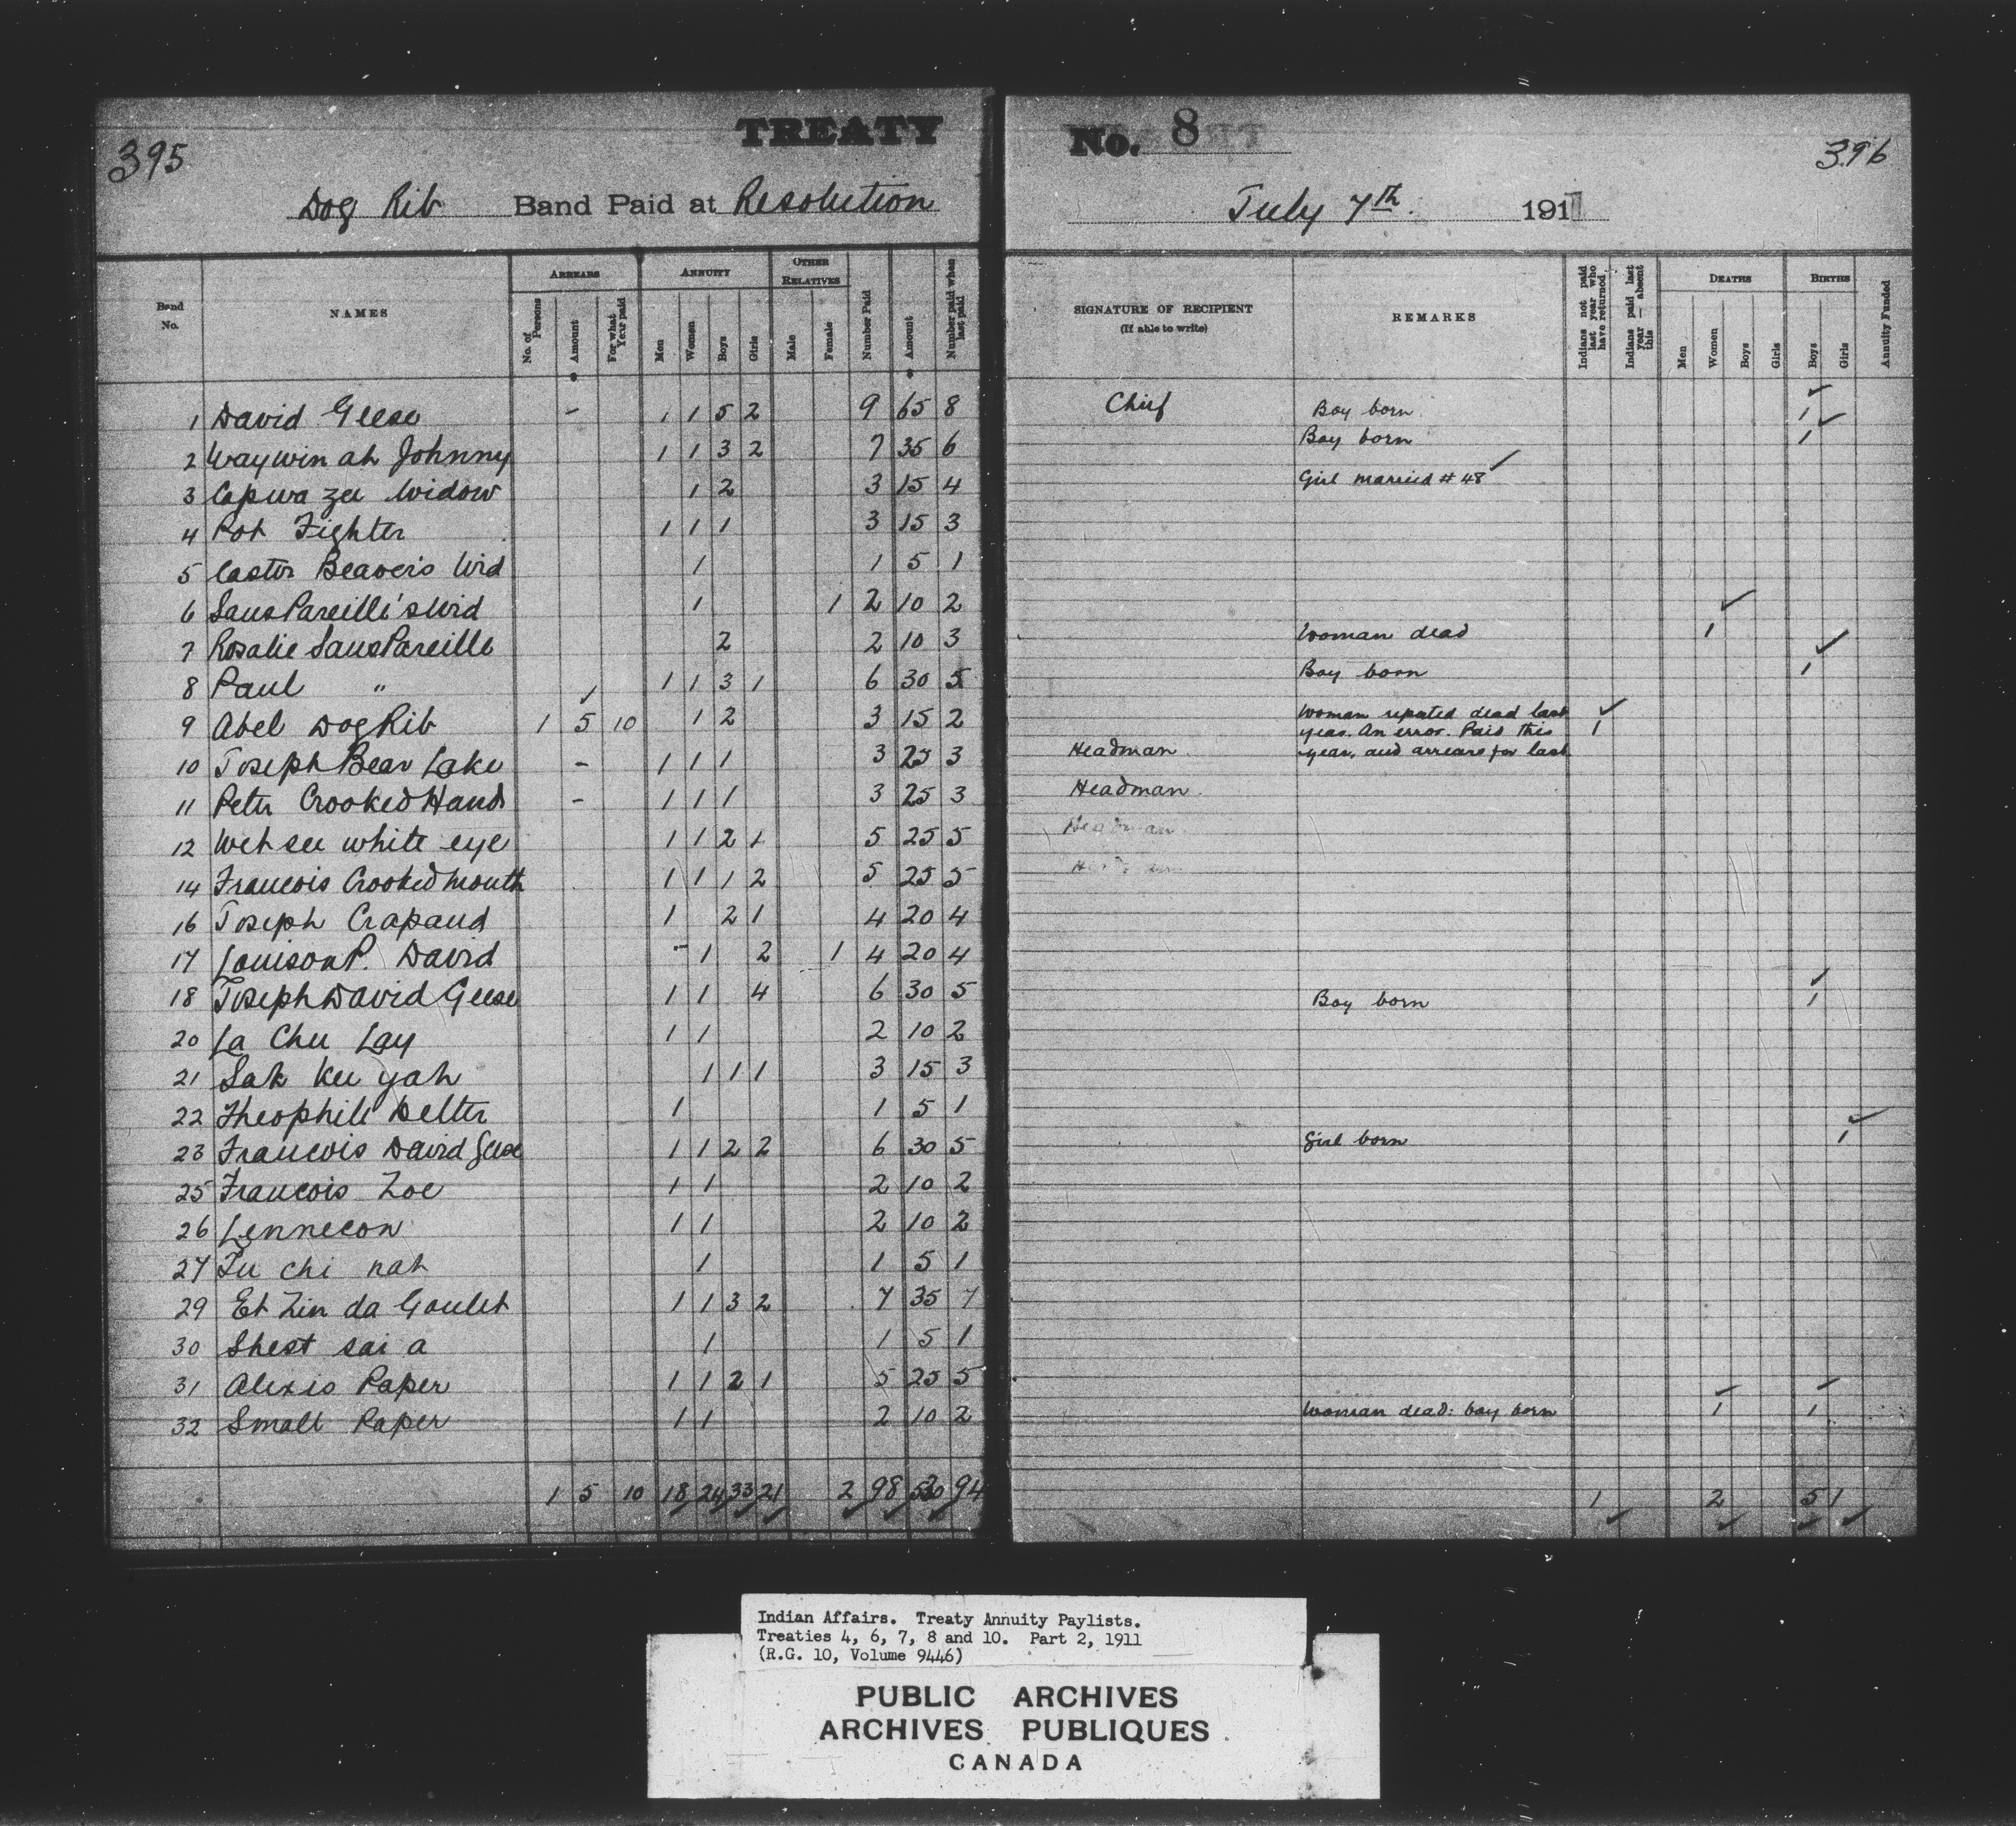 395
TREATY
Dog Rib Band Paid at Resolution
No. 8
396
July 7th. 191
Band No.
NAMES
ARREARS
No. of Persons
Amount
For what Year paid
ANNUITY
Men
Women
Boys
Girls
OTHER RELATIVES
Male
Female
Number Paid
Amount
Number paid when last paid
SIGNATURE OF RECIPIENT
(If able to write)
REMARKS
Indians not paid last year who have returned
Indians paid last year — absent this
DEATHS
Men
Women
Boys
Girls
BIRTHS
Boys
Girls
Annuity Funded
1 David Geese - 1 1 5 2 9 65 8 Chief Boy born 1
2 Waywin ah Johnny 1 1 3 2 7 35 6 Boy born 1
3 Capwa zee Widow 1 2 3 15 4 Girl married # 48
4 Pot Fighter 1 1 1 3 15 3
5 Castor Beaver's Wid 1 1 5 1
6 Sans Pareille's Wid 1 1 2 10 2
7 Rosalie Sans Pareille 2 2 10 3 Woman dead 1
8 Paul " 1 1 3 1 6 30 5 Boy born 1
9 Abel Dog Rib 1 5 10 1 2 3 15 2 Woman reported dead last year. An error. Paid this year, and arrears for last 1
10 Joseph Bear Lake - 1 1 1 3 25 3 Headman
11 Peter Crooked Hand - 1 1 1 3 25 3 Headman.
12 Wet see white eye 1 1 2 1 5 25 5 Headman
14 Francois Crooked mouth 1 1 1 2 5 25 5
16 Joseph Crapaud 1 2 1 4 20 4
17 Louison P. David - 1 2 1 4 20 4
18 Joseph David Geese 1 1 4 6 30 5 Boy born 1
20 La Chu Lay 1 1 2 10 2
21 Sak kee yah 1 1 1 3 15 3
22 Theophile Delter 1 1 5 1
23 Francois David Geese 1 1 2 2 6 30 5 Girl born 1
25 Francois Zoe 1 1 2 10 2
26 Lennecon 1 1 2 10 2
27 Tu chi nah 1 1 5 1
29 Et Zin da Goulet 1 1 3 2 7 35 7
30 Shest sai a 1 1 5 1
31 Alexis Paper 1 1 2 1 5 25 5
32 Small Paper 1 1 2 10 2 Woman dead: boy born 1 1
1 5 10 18 24 33 21 2 98 94 1 2 5 1
Indian Affairs. Treaty Annuity Paylists.
Treaties 4, 6, 7, 8 and 10. Part 2, 1911
(R.G. 10, Volume 9446)
PUBLIC ARCHIVES
ARCHIVES PUBLIQUES
CANADA